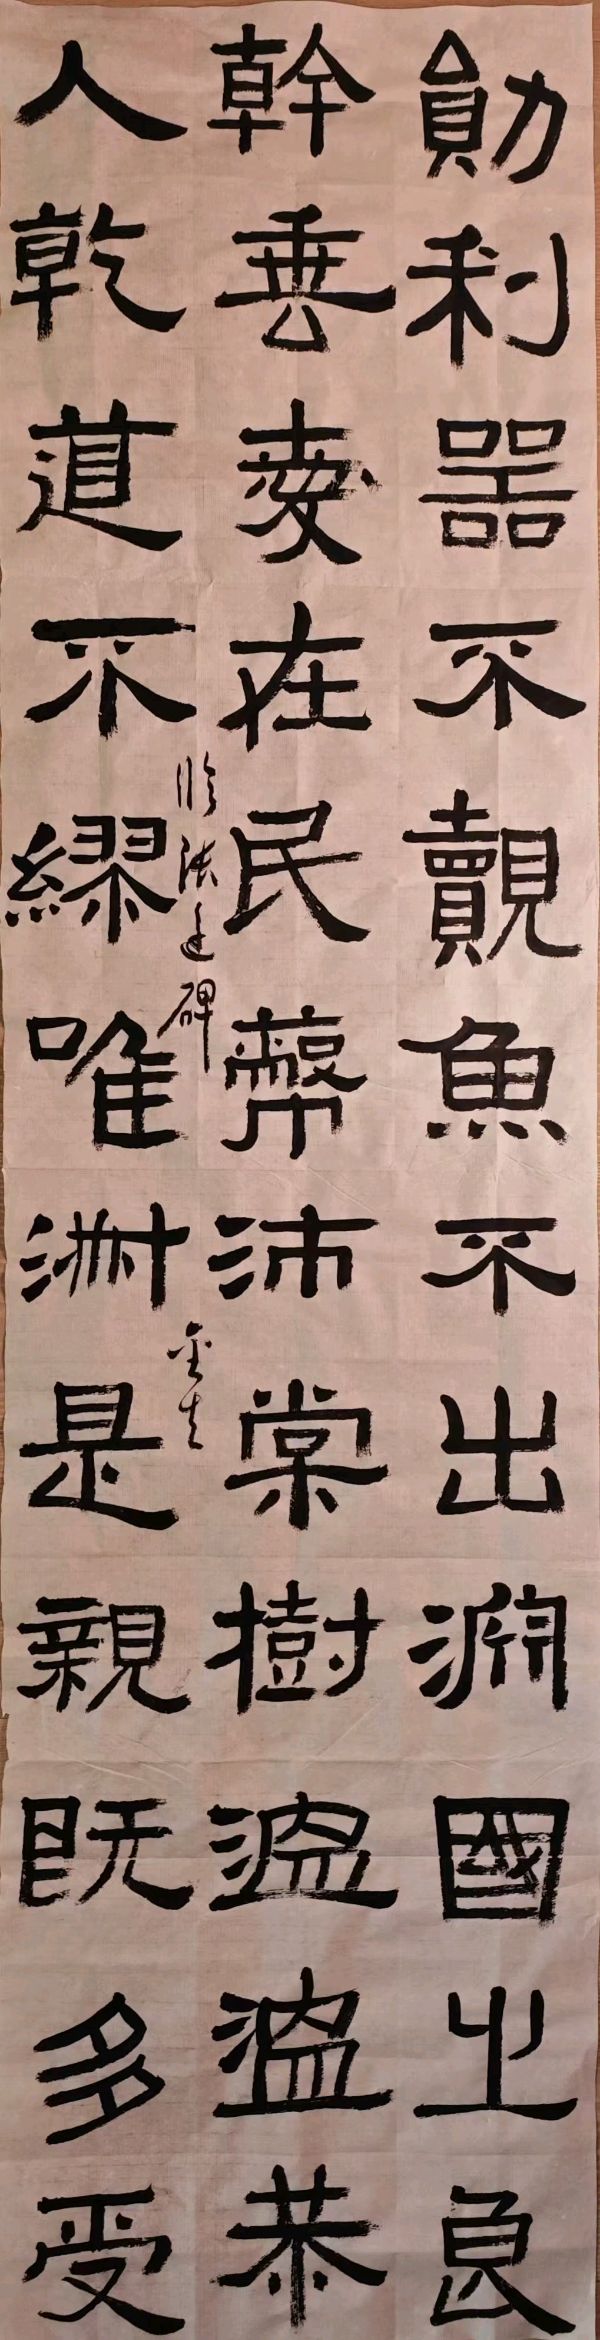 勛利器不覿魚不出淵國之良
幹垂愛在民蔽沛棠樹溫溫恭
人乾道不繆唯淑是親既多受
臨張遷碑